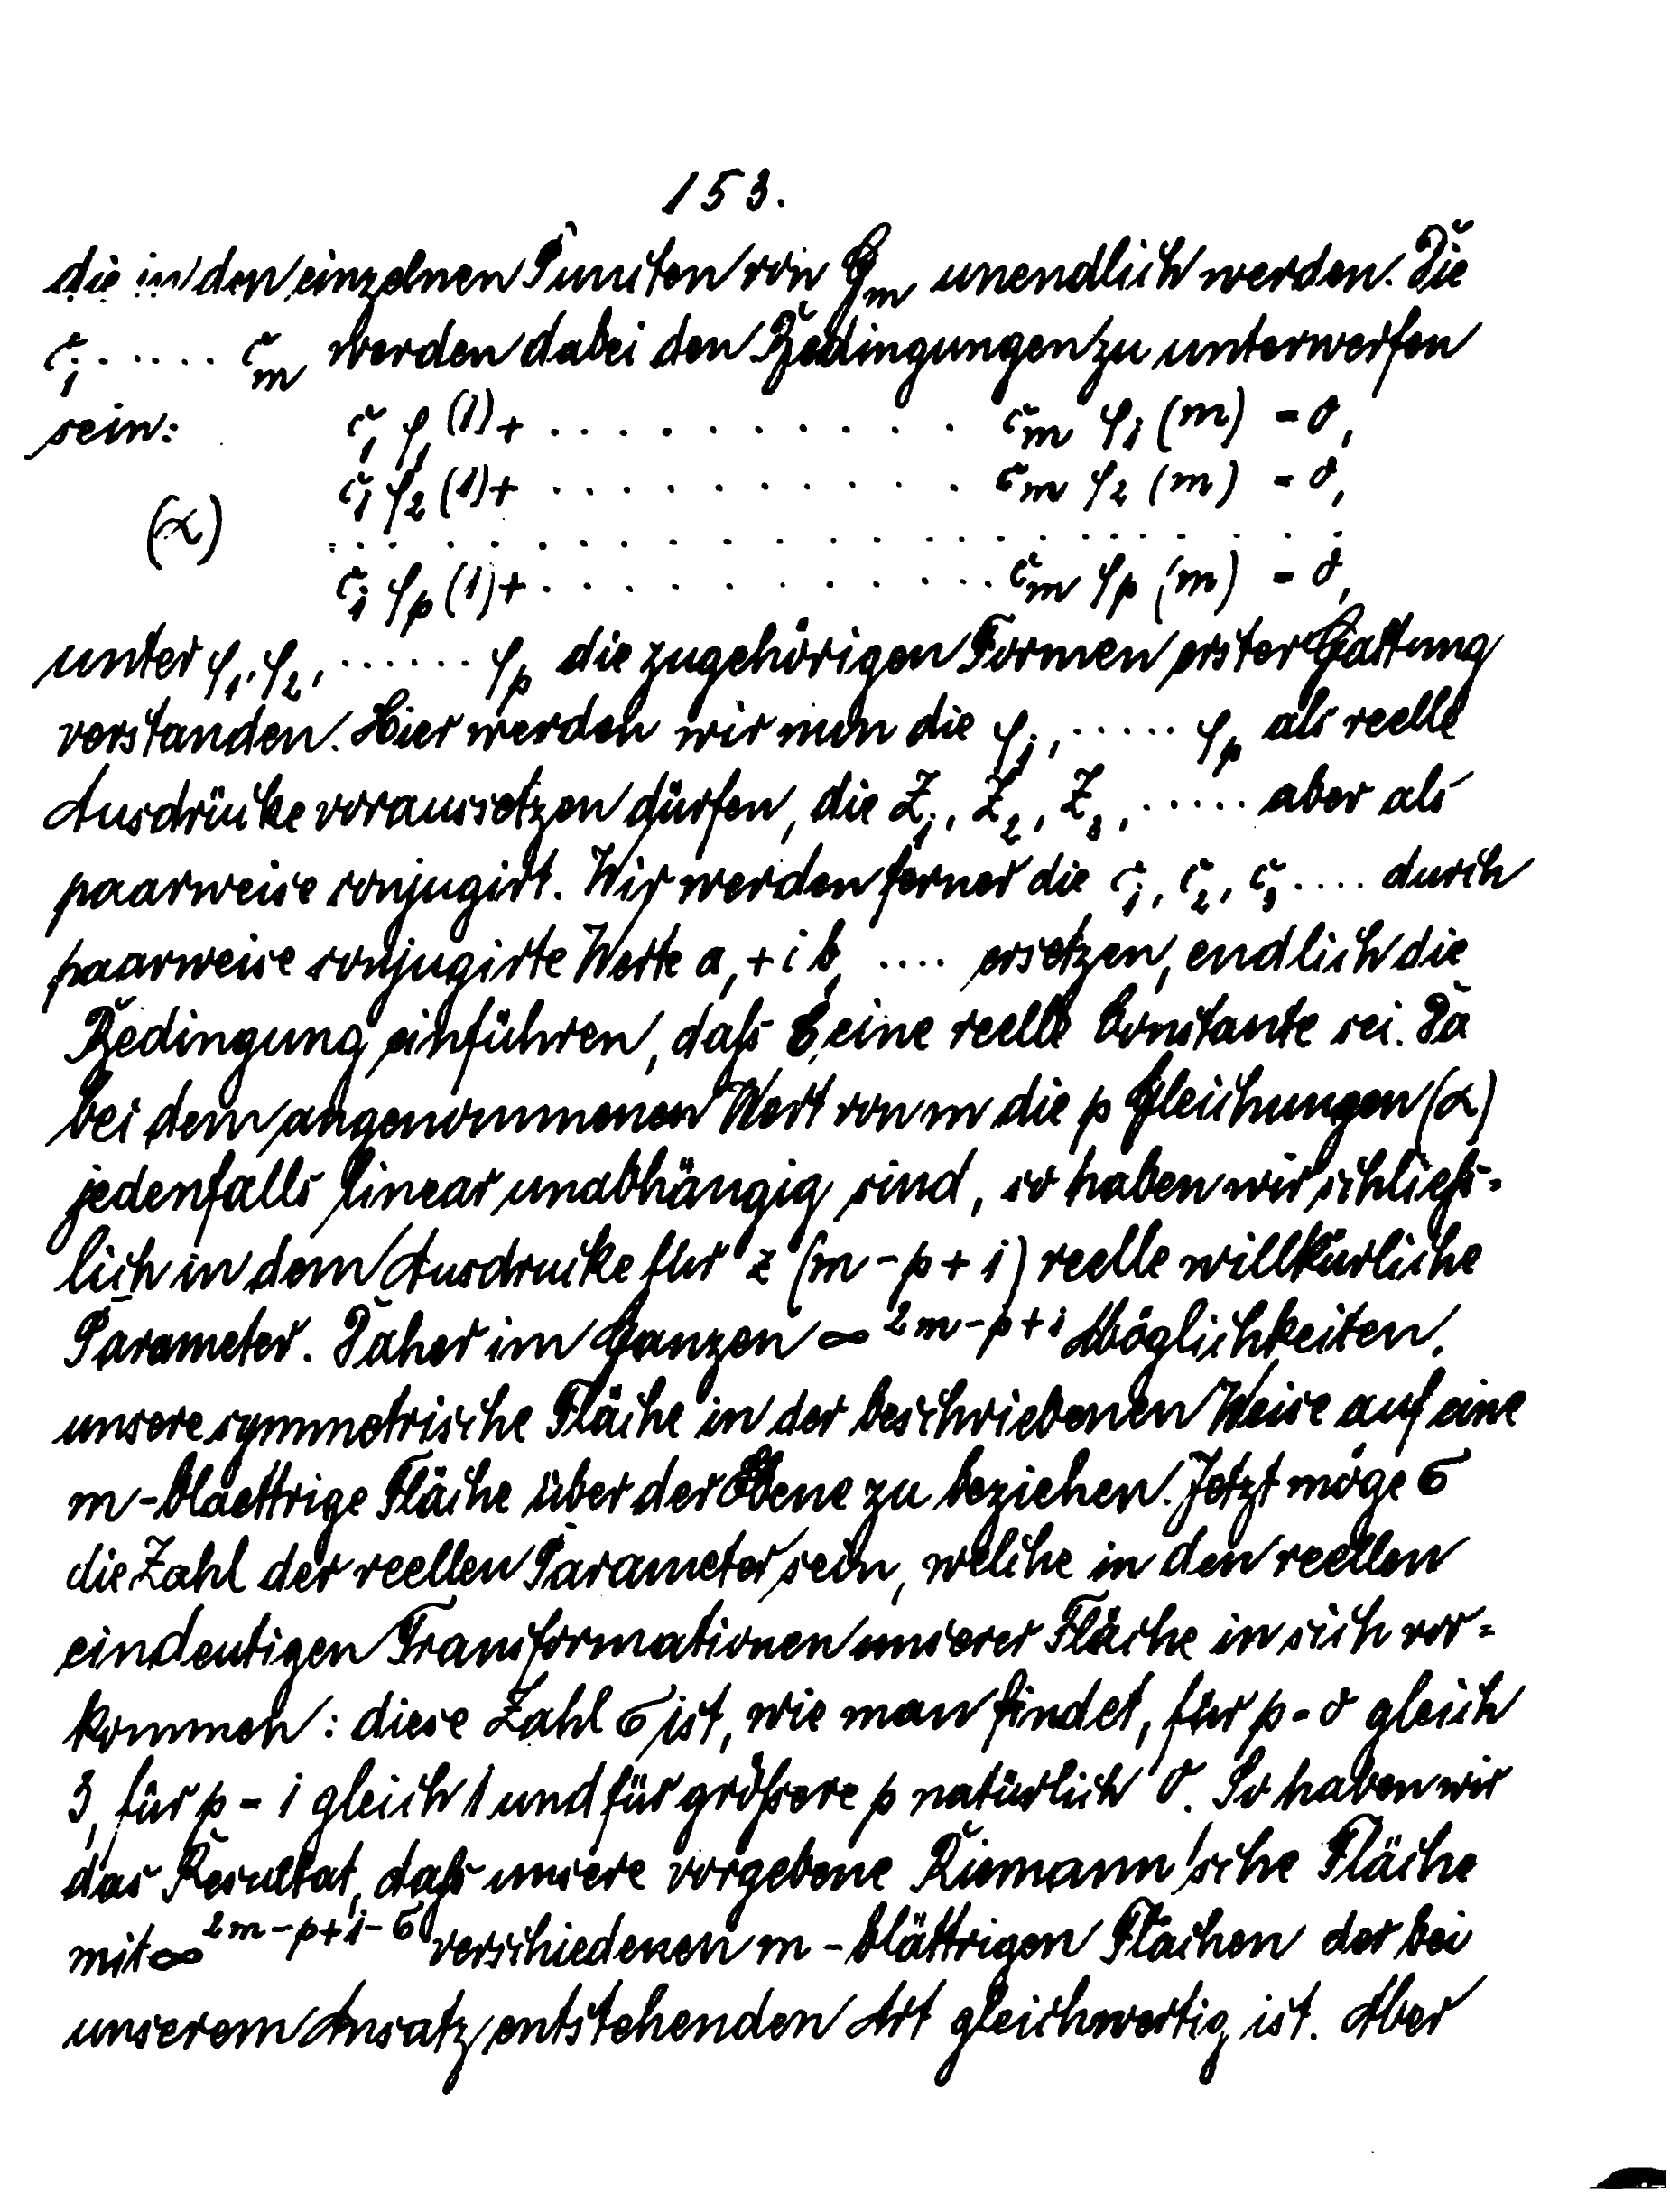 153.
die in den einzelnen Puncten von G_m unendlich werden. Die
c_1 ..... c_m werden dabei den Bedingungen zu unterwerfen
sein: c_1 φ_1 (1) + ........... c_m φ_1 (m) = 0,
c_1 φ_2 (1) + ........... c_m φ_2 (m) = 0,
(α) ......................
c_1 φ_p (1) + ........... c_m φ_p (m) = 0,
unter φ_1, φ_2, ...... φ_p die zugehörigen Formen erster Gattung
verstanden. Hier werden wir nun die φ_1, ..... φ_p als reelle
Ausdrücke voraussetzen dürfen, die Z_1, Z_2, Z_3, ..... aber als
paarweise conjugirt. Wir werden ferner die c_1, c_2, c_3 .... durch
paarweise conjugirte Werte a_1 + i b_1 .... ersetzen, endlich die
Bedingung einführen, daß C eine reelle Constante sei. Da
bei dem angenommenen Wert von m die p Gleichungen (α)
jedenfalls linear unabhängig sind, so haben wir schließ-
lich in dem Ausdrucke für z (m - p + 1) reelle willkürliche
Parameter. Daher im Ganzen ∞^{2m-p+1} Möglichkeiten,
unsere symmetrische Fläche in der beschriebenen Weise auf eine
m-blaettrige Fläche über der Ebene zu beziehen. Jetzt möge σ
die Zahl der reellen Parameter sein, welche in den reellen
eindeutigen Transformationen unserer Fläche in sich vor-
kommen: diese Zahl σ ist, wie man findet, für p = 0 gleich
3, für p = 1 gleich 1 und für größere p natürlich 0. So haben wir
das Resultat, daß unsere vorgebene Riemann'sche Fläche
mit ∞^{2m-p+1-σ} verschiedenen m-blättrigen Flächen der bei
unserem Ansatz entstehenden Art gleichwertig ist. Aber